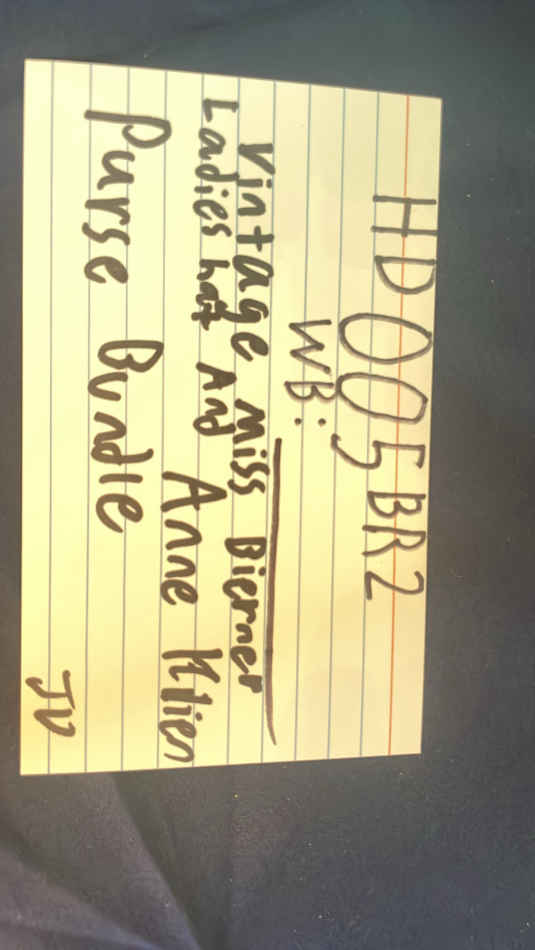 HD005BR2
WB:
Vintage Miss Bierner
Ladies hat And Anne Klien
Purse Bundle
JV